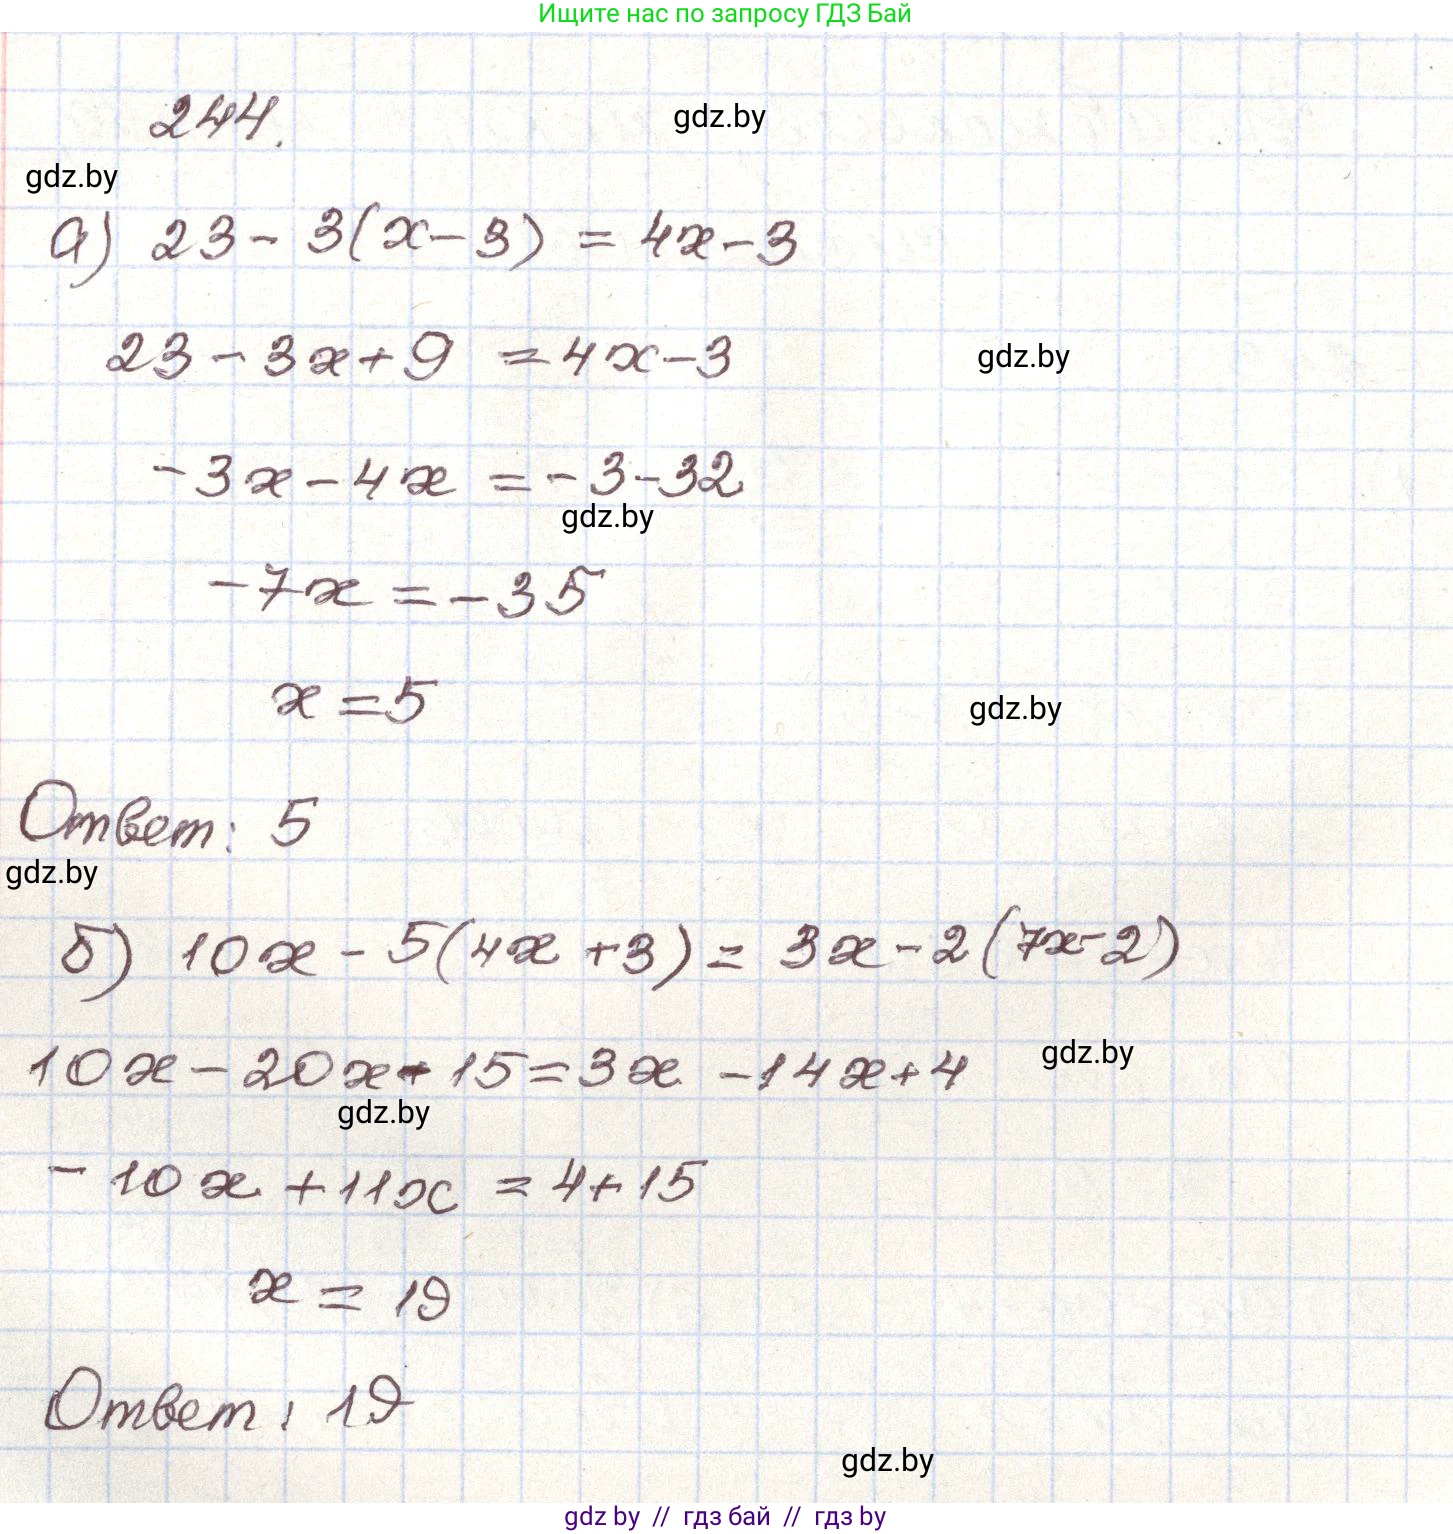 Ищите нас по запросу ГДЗ Бай
244.
gdz.by
gdz.by
а) 23 - 3(x - 3) = 4x - 3
23 - 3x + 9 = 4x - 3
gdz.by
- 3x - 4x = - 3 - 32
gdz.by
- 7x = - 35
x = 5
gdz.by
Ответ: 5
gdz.by
б) 10x - 5(4x + 3) = 3x - 2(7x - 2)
10x - 20x - 15 = 3x - 14x + 4
gdz.by
gdz.by
- 10x + 11x = 4 + 15
x = 19
Ответ: 19
gdz.by
gdz by // гдз бай // гдз by